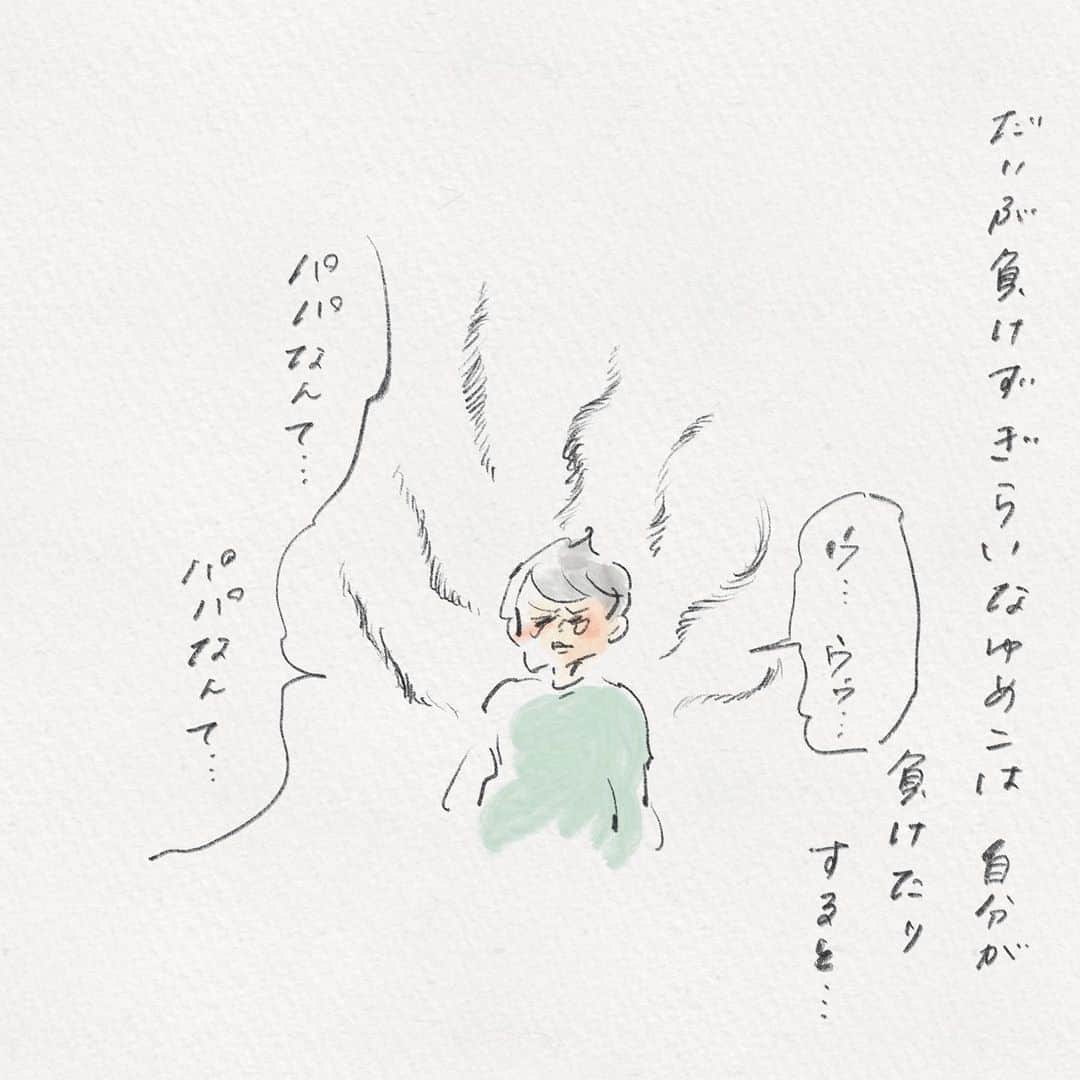 だいぶ負けずぎらいなゆめこは 自分が
負けたり
すると…
ウ… ウゥ…
パパなんて…
パパなんて…